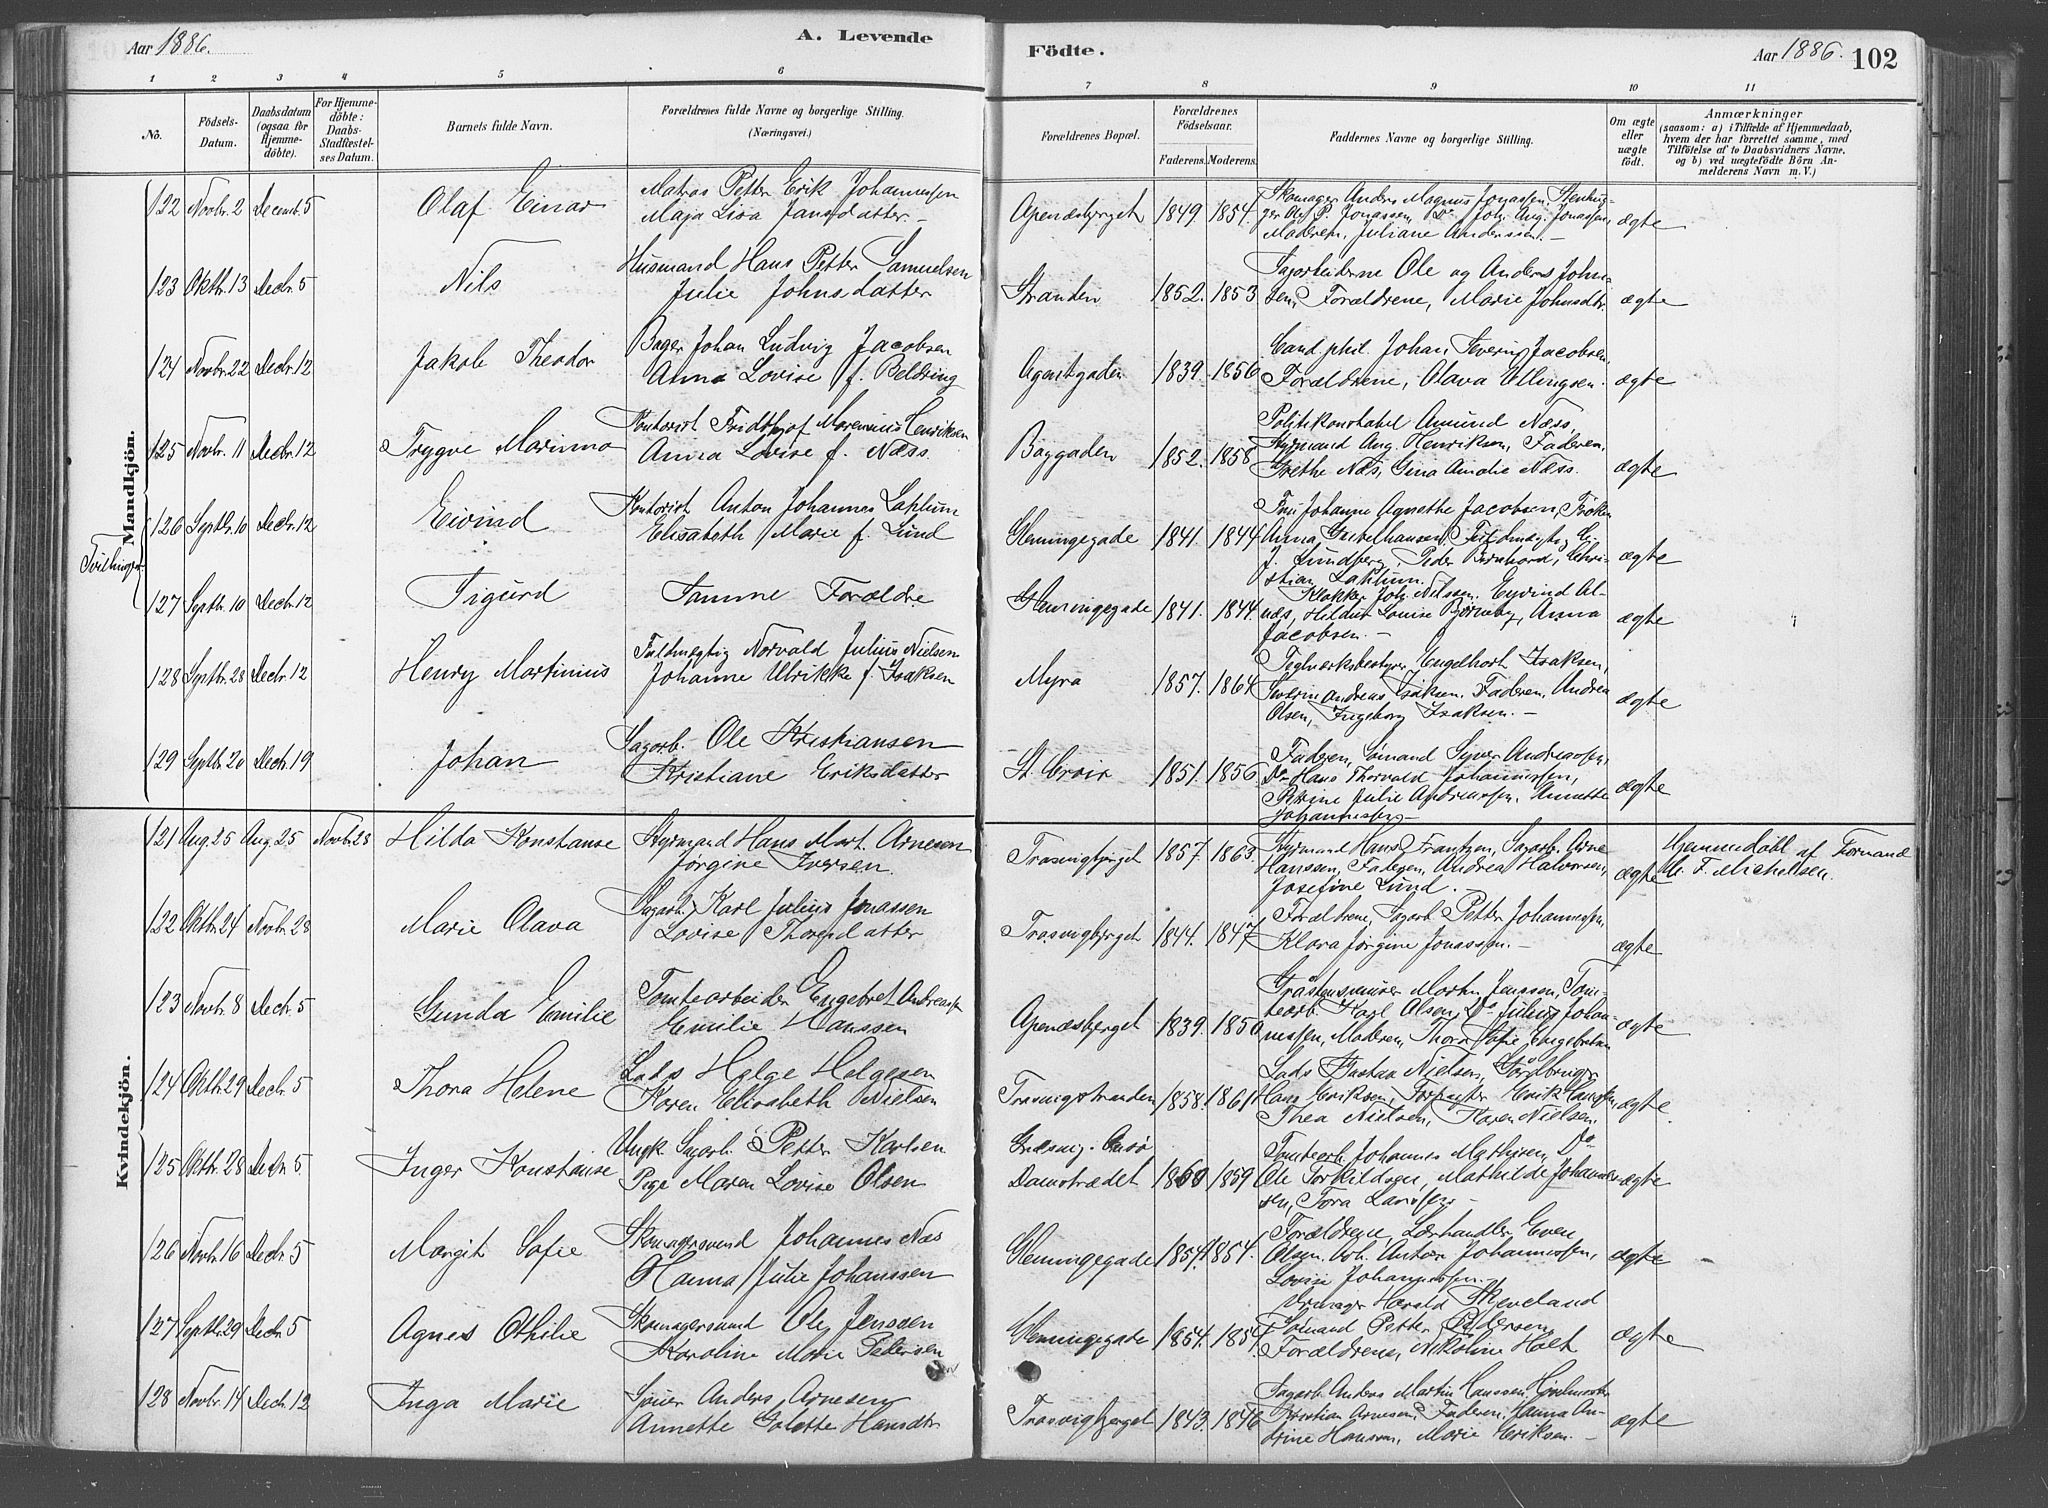 Aar 1886.
A. Levende
Födte.
Aar 1886.
102
1 2 3 4 5 6 7 8 9 10 11
No.
Födsels-Datum.
Daabsdatum (ogsaa for Hjemmedöbte).
For Hjemmedöbte: Daabs-Stadfæstelses Datum.
Barnets fulde Navn.
Forældrenes fulde Navne og borgerlige Stilling. (Næringsvei.)
Forældrenes Bopæl.
Forældrenes Födselsaar.
Faderens. Moderens.
Faddernes Navne og borgerlige Stilling.
Om ægte eller uægte födt.
Anmærkninger
(saasom: a) i Tilfælde af Hjemmedaab, hvem der har forrettet samme, med Tilföielse af to Daabsvidners Navne, og b) ved uægtefödte Börn Anmelderens Navn m. V.)
Mandkjön.
122 Novbr. 2 Decemb. 5 Olaf Einar
Matros Petter Erik Johannessen
Maja Lisa Jansdatter
Apenæsbjerget 1849 1854.
Skomager Anders Magnus Jonassen, Stenhug-
ger Olof P. Jonassen, Do Joh. Aug. Jonassen,
Moderen, Juliane Anderssen.
ægte
123 Oktbr. 13 Decbr. 5 Nils
Husmand Hans Petter Samuelsen
Julie Johnsdatter
Stranden 1852. 1853
Sagarbeiderne Ole og Anders John-
sen, Forældrene, Marie Johnsdtr.
ægte
124 Novbr. 22 Decbr. 12 Jakob Theodor
Bager Johan Ludvig Jacobsen
Anna Lovise f. Beldring
Agentgaden 1839. 1856
Cand. phil. Johan Severin Jacobsen
Forældrene, Olava Ellingsen.
ægte
125 Novbr. 11 Decbr. 12 Trygve Marinmo
Kontorist Fridthjof Marenius Henriksen
Anna Lovise f. Næss.
Baggaden 1852. 1858
Politikonstabel Amund Næss,
Styrmand Aug. Henriksen, Faderen,
Grethe Næs, Gina Amalie Næss.
ægte
Tvillinger
126 Septbr. 10 Decbr. 12 Eivind
Kontorist Anton Johannes Laphum
Elisabeth Marie f. Lund
Glemmingegade 1841. 1844
Fru Johanne Agnethe Jacobsen, Frøken
Anna Gustelhausen, Fuldmægtig
J. Lundberg, Peder Bernhard, Chri-
stian Laphum.
ægte
127 Septbr. 10 Decbr. 12 Sigurd
Samme Forældre
Glemmingegade 1841. 1844.
Klokker Joh. Nilssen, Eyvind Al-
næs, Hildur Louise Bjørneby, Anna
Jacobsen.
ægte
128 Septbr. 28 Decbr. 12 Henry Martinius
Fuldmægtig Norvald Julius Nielsen
Johanne Ulrikke f. Isaksen
Myra 1857. 1864
Teglværksbestyrer Engelhart Isaksen,
Severin Andreas Isaksen, Faderen, Andrea
Olsen, Ingeborg Isaksen.
ægte
129 Septbr. 20 Decbr. 19 Johan
Sagarb. Ole Kristiansen
Kristiane Eriksdatter
St. Croix 1851. 1856
Faderen, Sømand Syver Andreassen,
Do Hans Thorvald Johannessen,
Julie Andreassen, Annette
Johannessen
ægte
Kvindekjön.
121 Aug. 25 Aug. 25 Novbr. 28 Hilda Konstanse
Styrmand Hans Mart. Arnesen
Jørgine Iversen.
Trosvigbjerget 1857. 1863.
Styrmand Hans Frantzen, Sagarb. Arne
Hanssen, Faderen, Andrea Halvorsen,
Josefine Lund.
ægte
Hjemmedøbt af Formand
F. Michelsen.
122 Oktbr. 24 Novbr. 28 Marie Olava
Sagarb. Karl Julius Jonassen
Lovise Thorsdatter
Trosvigbjerget 1844. 1847
Forældrene, Sagarb. Petter Johannessen,
Klara Jørgine Jonassen.
ægte
123 Novbr. 8 Decbr. 5 Gunda Emilie
Tomtearbeider Engebret Andreassen
Emilie Hanssen
Apenæsberget 1839. 1850
Gråstensmurer Martin Jenssen, Tom-
tearb. Karl Olsen, Do Julius Johan-
nessen, Moderen, Thora Sofie Engebretsen
ægte
124 Oktbr. 29 Decbr. 5 Thora Helene
Lods Helge Helgesen
Karen Elisabeth Nielsen
Trosvigstranden 1858. 1861
Lods Gustav Nielsen, Gårdbruger
Hans Eriksen, Forpagter Erik Hansen,
Thea Nielsen, Karen Nielsen.
ægte.
125 Oktbr. 28 Decbr. 5 Inger Konstanse
Ungk. Sagarb. Petter Karlsen
Pige Maren Lovise Olsen
Græsvig. Onsø
Damstrædet 1860 1859
Tomtearb. Johannes Mathisen, Do
Ole Torkildsen, Mathilde Johannes-
sen, Tora Larssen
ægte
126 Novbr. 16 Decbr. 5 Margit Sofie
Skomagersvend Johannes Næs
Hanna Julie Johanssen
Glemmingegade 1854. 1854.
Forældrene, Lærhandler Even
Olsen, Arb. Anton Johannessen,
Lovise Johannessen.
ægte
127 Septbr. 29 Decbr. 5 Agnes Othilie
Skomagersvend Ole Jenssen
Karoline Marie Pedersen
Glemmingegade 1854. 1854
Urmager Harald Skjeveland
Sømand Petter Pedersen
Forældrene, Nikoline Holt
ægte
128 Novbr. 14 Decbr. 12 Inga Marie
Anders Arnesen
Annette Golette Hansdtr.
Trosvigbjerget 1843. 1846
Sagarb. Anders Martin Hanssen,
Kristian Arnesen, Faderen, Hanna An-
drine Hansen, Marie Eriksen.
ægte